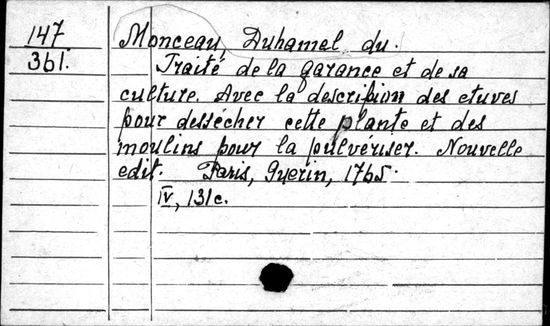 147 Monceau, Duhamel du.
361. Traité de la garance et de sa
culture. Avec la description des etuves
pour dessécher cette plante et des
moulins pour la pulvériser. Nouvelle
edit. Paris, Guerin, 1765.
IV, 131c.